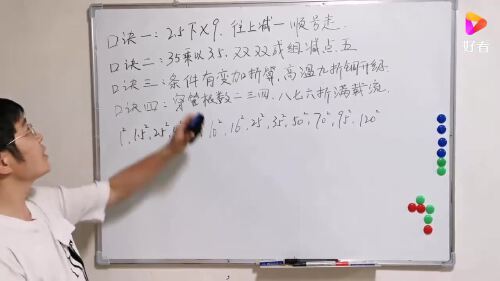 好看
口诀一：2.5下×9.往上减一顺号走.
口诀二：35乘以3.5.双双成组减点五
口诀三：条件有变加折算,高温九折铜升级.
口诀四：穿管根数二三四.八七六折满载流.
1²、1.5²、2.5² 10²、16²、25²、35²、50²、70²、95²、120²